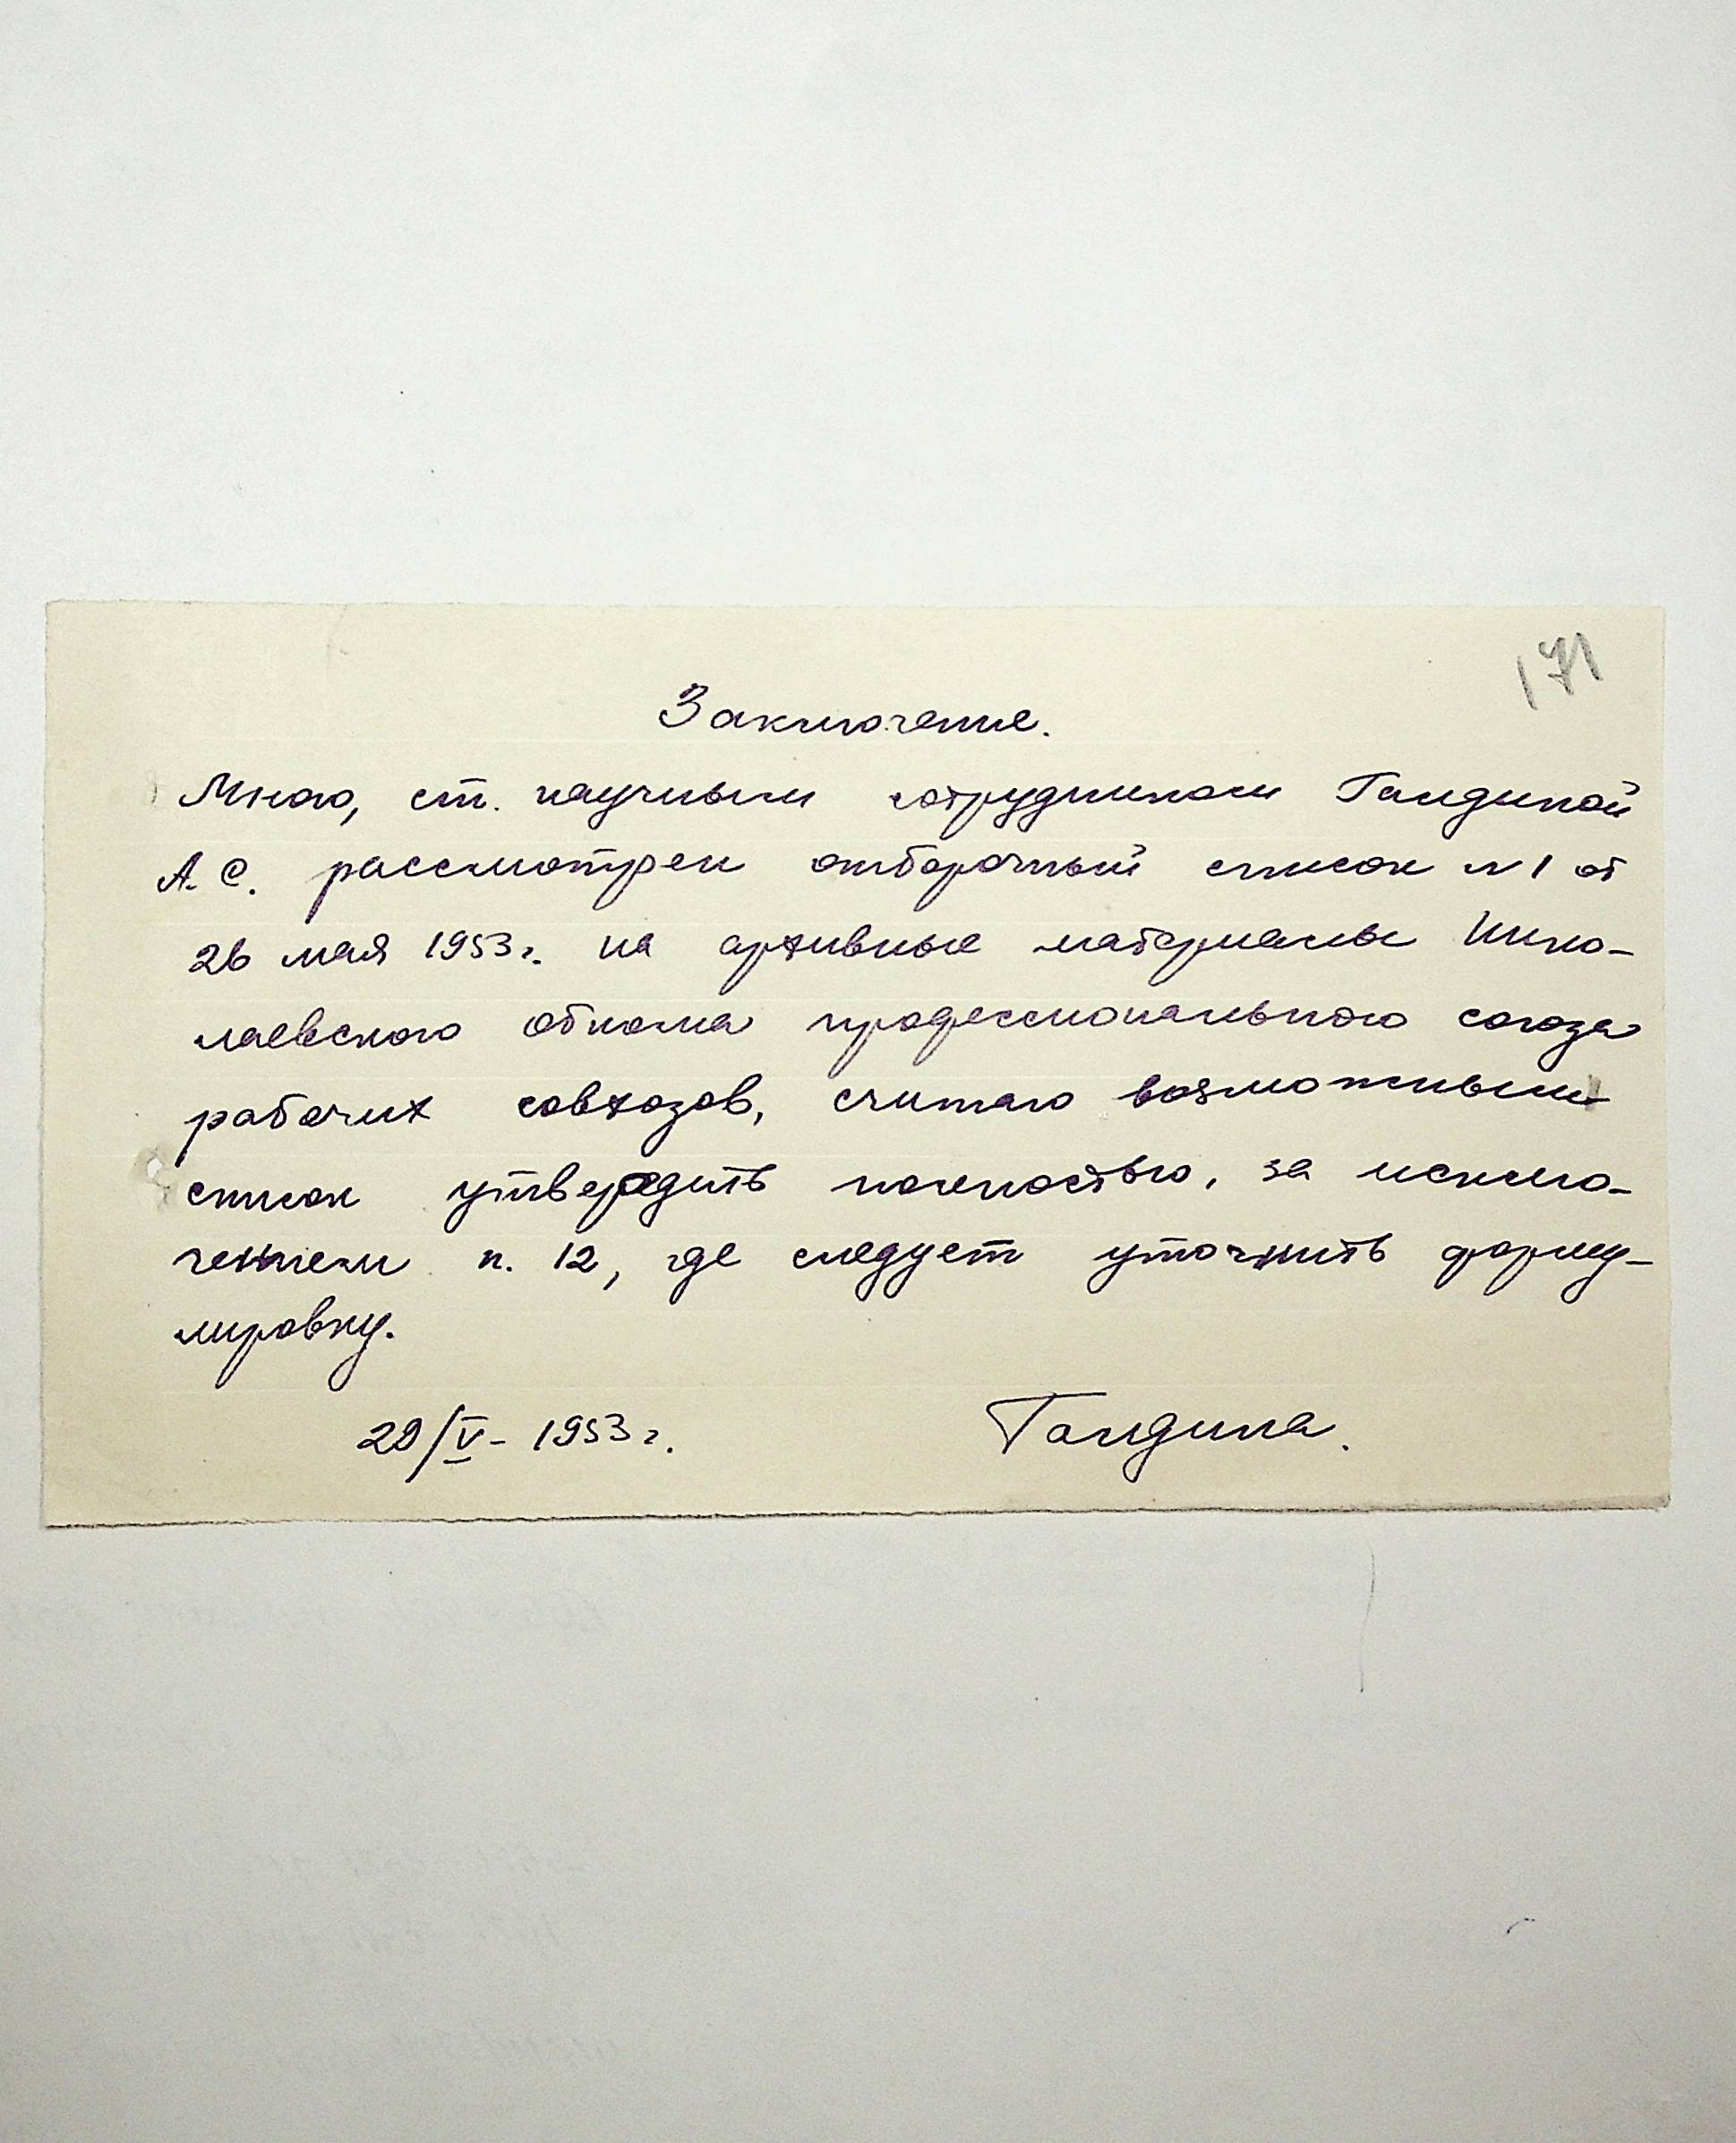 171
Заключение.
Мною, ст. научным сотрудником Галдиной
А. С. рассмотрен отборочный список № 1 от
26 мая 1953 г. на архивные материалы Нико-
лаевского обкома профессионального союза
рабочих совхозов, считаю возможным
список утвердить полностью, за исклю-
чением п. 12, где следует уточнить форму-
лировку.
29/V - 1953 г. Галдина.